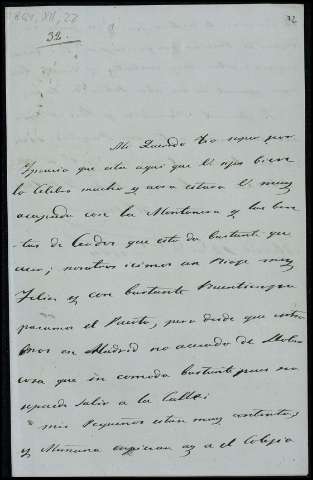 32
32.
Mi Querido Tio supe por
Ygnacio que esta aqui que V. sijue bien
lo Celebro mucho y aora estara V. muy
ocupado con la Montanera y las ben
tas de Cerdos que esto da bastante que
acer; nosotros icimos un Biage muy
Feliz y con bastante Buentiempo
pasamos el Puerto, pero desde que entra
mos en Madrid no acavado de Llober
cosa que in comoda bastante pues no
sepuede Salir a la Calle;
mis Pequeños estan muy contentos,
y Mañana empiezan ay a el Colegio